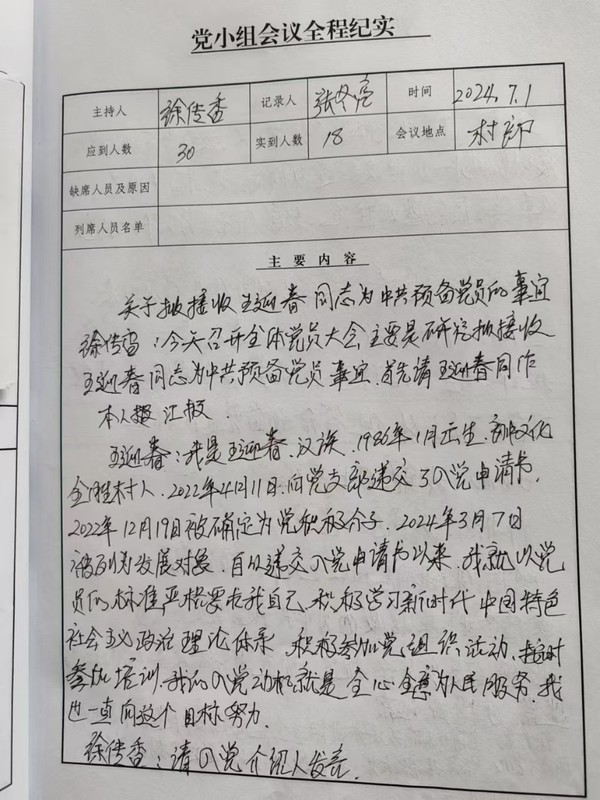 党小组会议全程纪实
主持人 徐传香 记录人 张冬亮 时间 2024.7.1
应到人数 30 实到人数 18 会议地点 村部
缺席人员及原因
列席人员名单
主要内容
关于拟接收王迎春同志为中共预备党员的事宜
徐传香：今天召开全体党员大会，主要是研究拟接收
王迎春同志为中共预备党员事宜，首先请王迎春同作
本人报汇报．
王迎春：我是王迎春，汉族，1986年1月出生，文化
全胜村人．2022年4月11日，向党支部递交了入党申请书，
2022年12月19日被确定为党积极分子．2024年3月7日
被列为发展对象．自从递交入党申请书以来，我就以党
员的标准严格要求我自己，积极学习新时代中国特色
社会主义政治理论体系，积极参加党组织活动，按时
参加培训，我的入党动机就是全心全意为人民服务，我
也一直向这个目标努力．
徐传香：请入党介绍人发言．